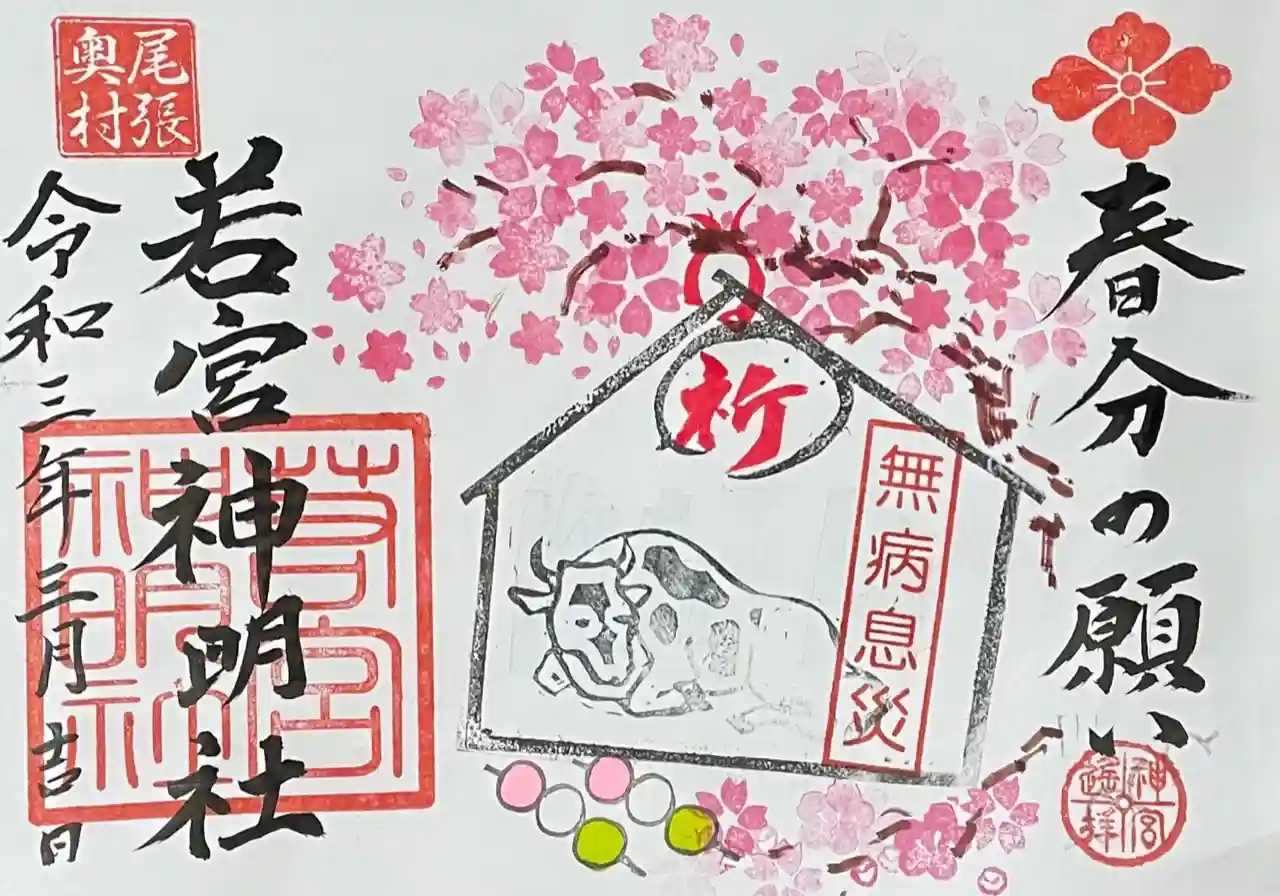 春分の願い
神宮
遙拝
祈
無病息災
尾張
奥村
若宮神明社
若宮
神明社
令和三年三月吉日